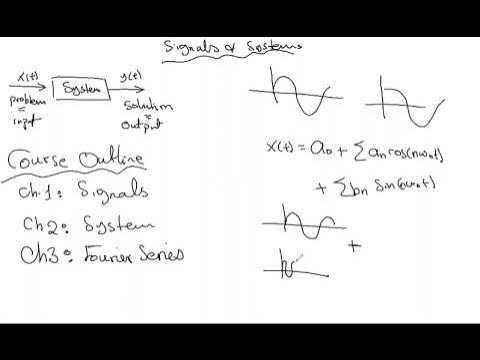 Signals & Systems
x(t)
System
y(t)
problem
=
input
Solution
=
output
Course Outline
Ch.1: Signals
Ch2: System
Ch3: Fourier Series
x(t) = a0 + Σ an cos(nω0t)
+ Σ bn Sin(nω0t)
+